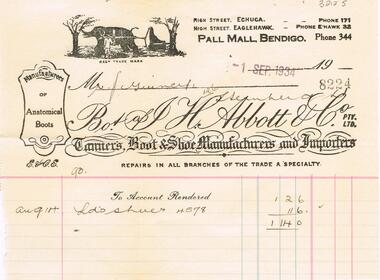 HIGH STREET, ECHUCA. - PHONE 171
HIGH STREET, EAGLEHAWK. - PHONE E'HAWK 32
PALL MALL, BENDIGO. Phone 344
REGD TRADE MARK
-1 SEP. 1934 19
Manufacturers
OF
Anatomical
Boots
Mr J.
8224
Bot. of J. H. Abbott & Co PTY. LTD.
Tanners, Boot & Shoe Manufacturers and Importers
E. & O. E.
REPAIRS IN ALL BRANCHES OF THE TRADE A SPECIALTY.
90.
To Account Rendered 1 2 6
Aug 14 Lds shoes 4078 11 6
1 14 0